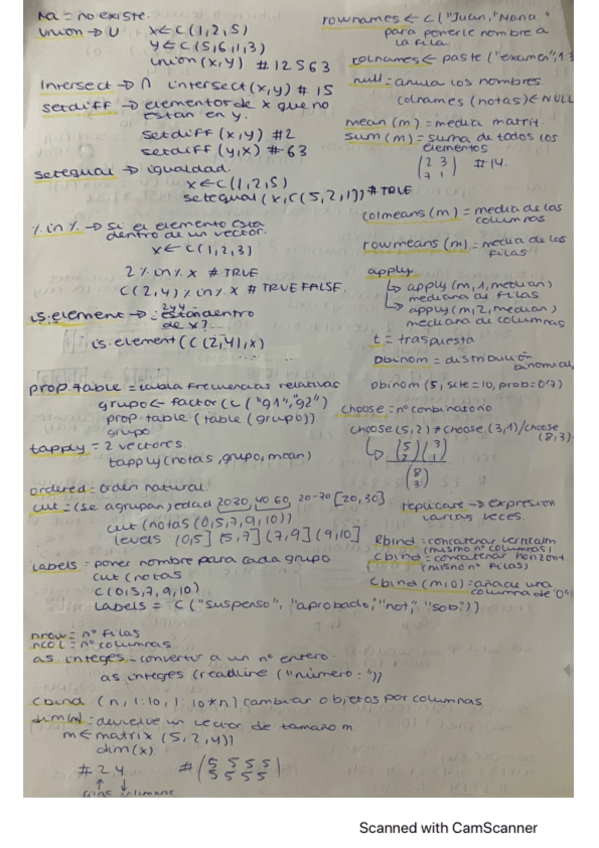 Na = no existe.
Union → U x ← c(1,2,5)
y ← c(5,6,1,3)
union(x,y) #12563
Intersect → ∩ intersect(x,y) # 15
setdiff → elementos de x que no
estan en y.
setdiff(x,y) #2
setdiff(y,x) #63
setequal → igualdad.
x ← c(1,2,5)
setequal(x,c(5,2,1)) #TRUE
% in % → Si el elemento esta
dentro de un vector.
x ← c(1,2,3)
2 % in % x # TRUE
c(2,4) % in % x # TRUE FALSE.
is.element → 2 y 4
estan dentro
de x?
is.element(c(2,4),x)
prop.table = tabla frecuencias relativas
grupo ← factor(c("g1","g2")
prop.table(table(grupo))
grupo
tapply = 2 vectores.
tapply(notas,grupo,mean)
ordered = orden natural.
cut = (se agrupan) edad 20 30, 40 60, 20-30 [20,30]
cut(notas(0,5,7,9,10))
levels (0,5] (5,7] (7,9] (9,10]
labels = poner nombre para cada grupo
cut(notas
c(0,5,7,9,10)
labels = c("suspenso", "aprobado," "not", "sob"))
nrow = nº filas
ncol = nº columnas
as integes - convertir a un nº entero.
as integes (readline ("número: "))
cbind (n, 1:10, 1:10*n) cambiar objetos por columnas
dim(m) = devuelve un vector de tamaño m
m ← matrix (5,2,4))
dim(x)
# 2,4 # (5 5 5 5
5 5 5 5)
filas columnas
rownames ← c("Juan," "Nana"
para ponerle nombre a
la fila.
colnames ← paste ("examen", 1:3
null = anula los nombres
colnames (notas) ← NULL
mean (m) = media matriz.
sum (m) = suma de todos los
elementos
(2 3
7 1) # 14.
colmeans (m) = media de las
columnas
rowmeans (m) = media de las
filas
apply
↳ apply (m,1,median)
mediana de filas
↳ apply (m,2,median)
mediana de columnas
t = traspuesta
Dbinom = distribución
binomial,
Dbinom (5, size=10, prob=0'7)
choose = nº combinatorio
choose(5,2) * choose(3,1)/choose
(8,3)
(5
2) (3
1)
(8
3)
replicate → expresion
varias veces.
Rbind = concatenar verticalm
(mismo nº columnas)
Cbind = concatenar horizont.
(mismo nº filas)
Cbind (m,0) = añade una
columna de "0"
Scanned with CamScanner